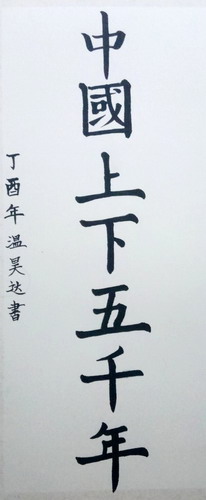 中國上下五千年
丁酉年温昊达書